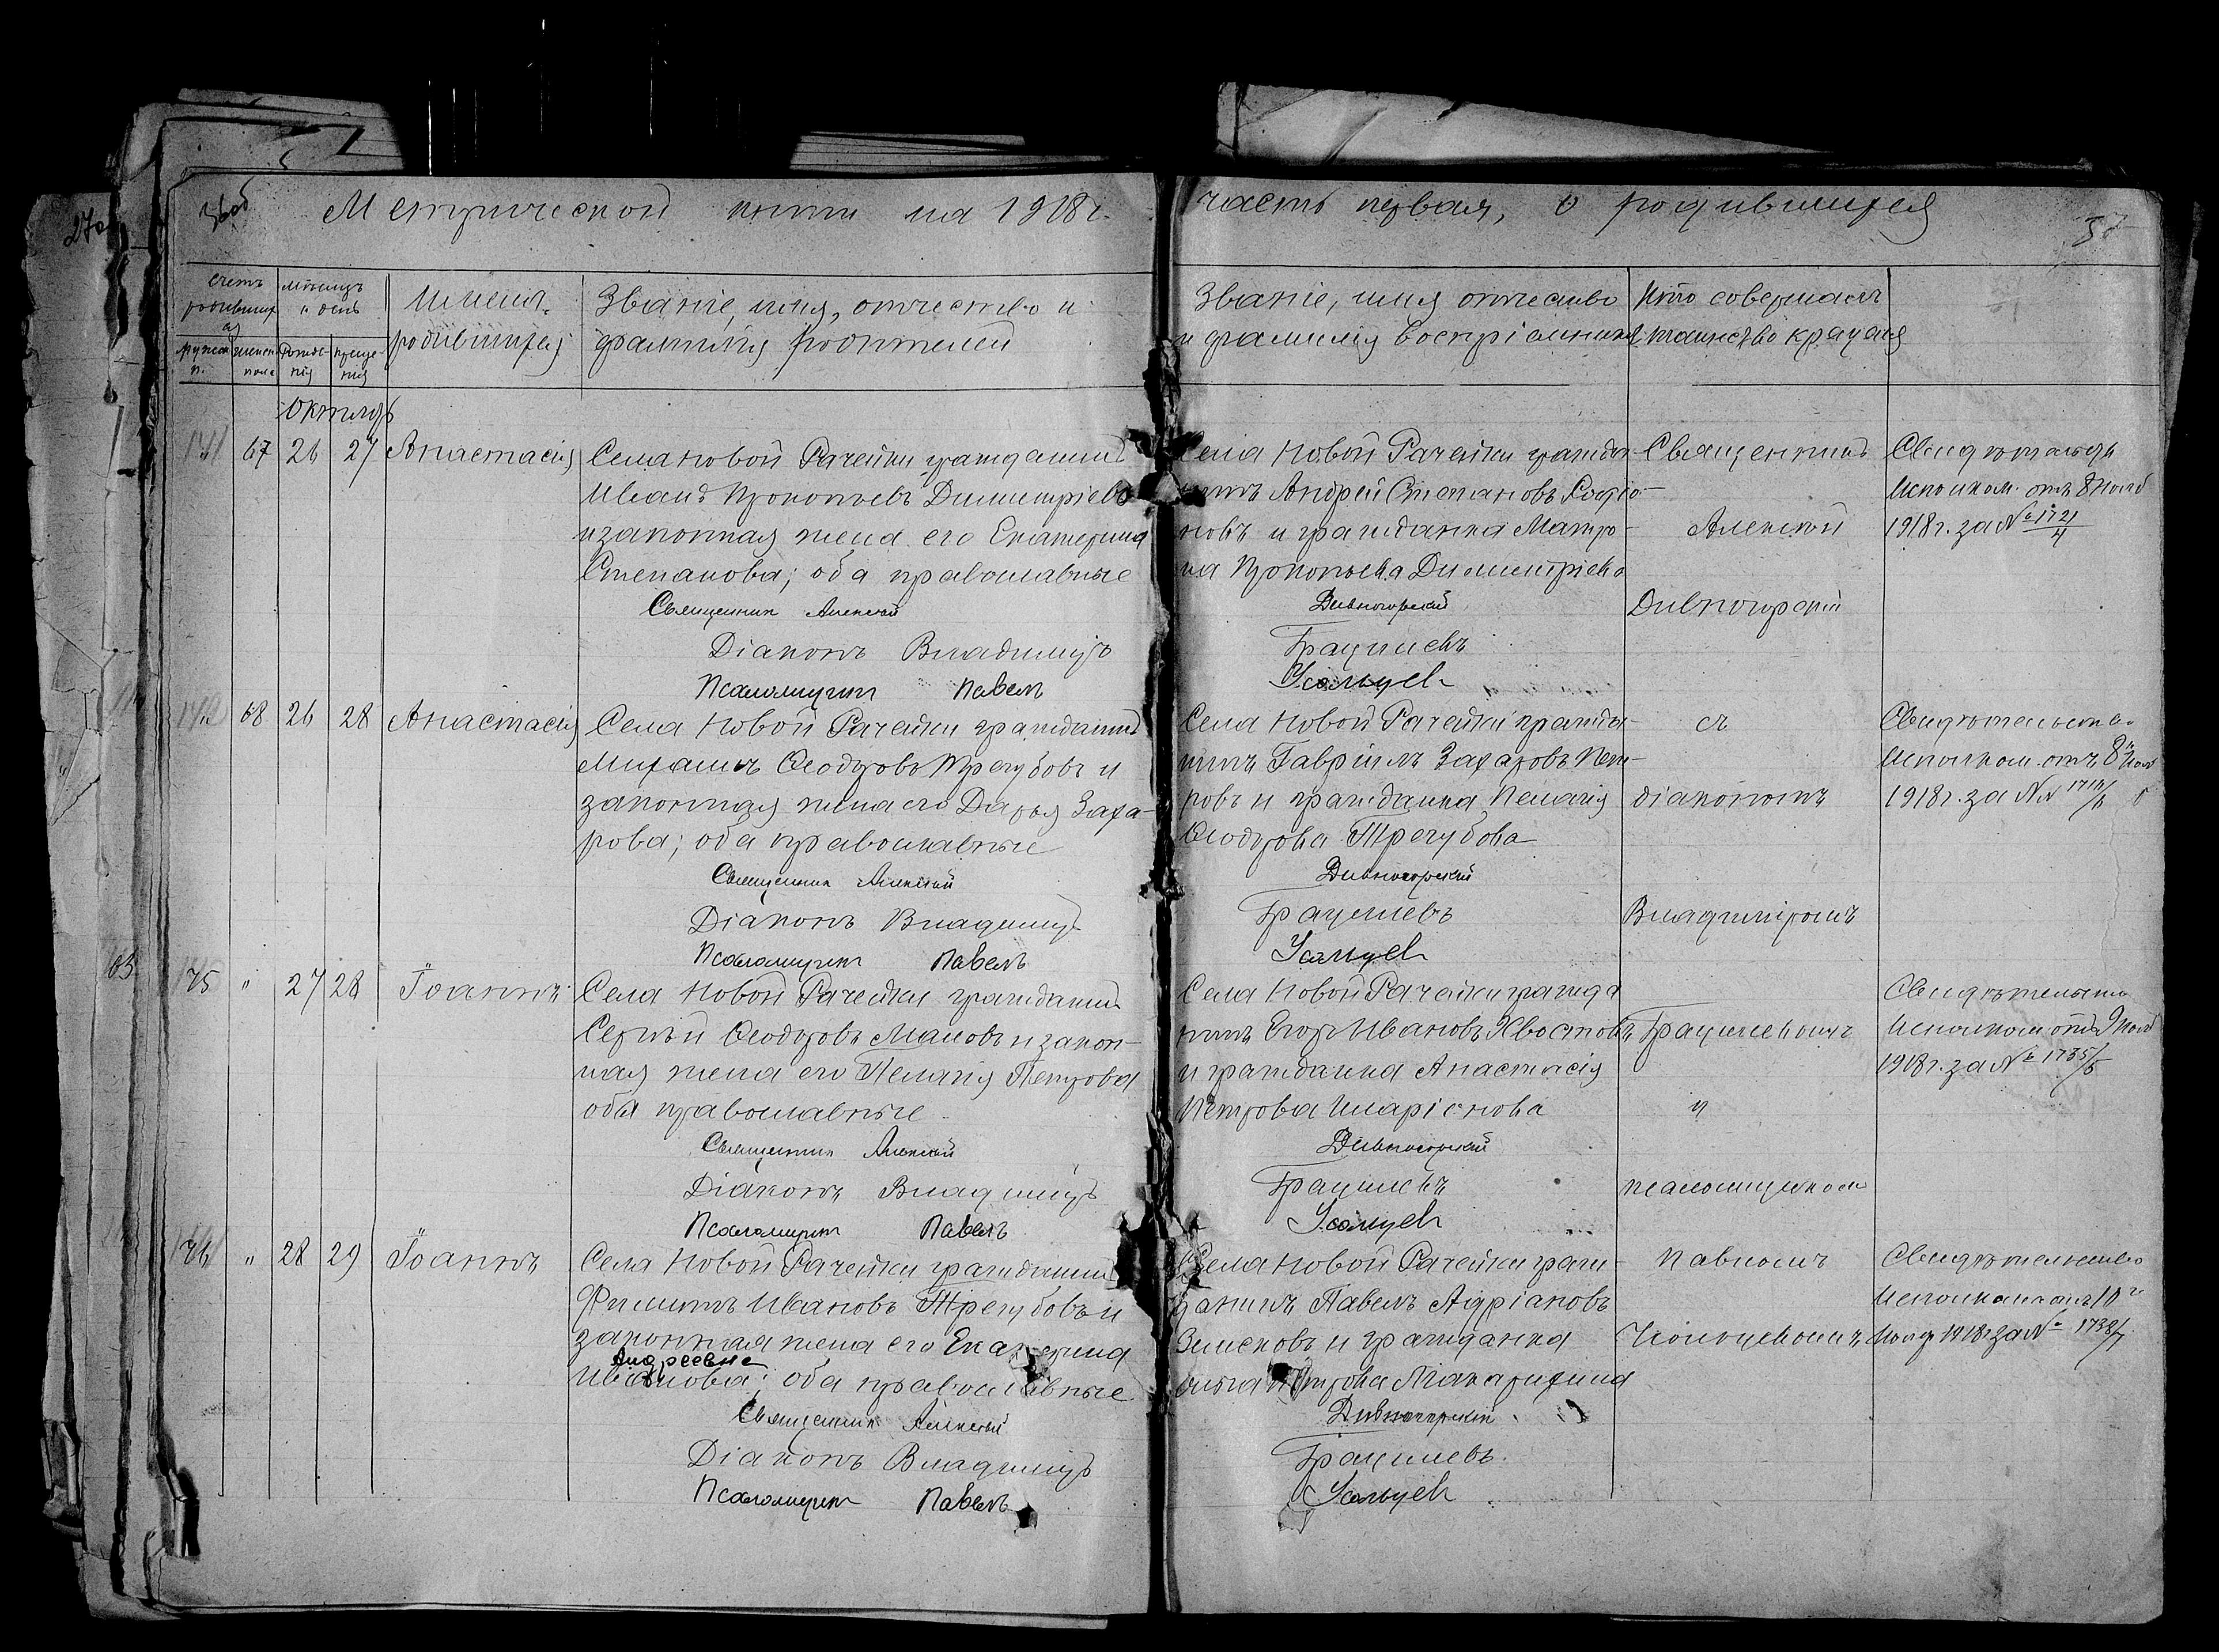 36об
Метрической книги на 1918 г.
часть первая, о родившихся
37
270
Счетъ родившихся
Мѣсяцъ и день
Имена родившихся
Званіе, имя, отчество и
фамилія родителей
Званіе, имя отчество
и фамилія воспріемниковъ
Кто совершалъ
таинство крещенія
Октябрь
67 26 27 Анастасія
Села Новой Рачейки гражданинъ
Иванъ Прокопьевъ Димитріевъ
и законная жена его Екатерина
Степанова; оба православные
Священник Алексей
Діаконъ Владиміръ
Псаломщик Павелъ
Села Новой Рачейки гражда-
нинъ Андрей Степановъ
новъ и гражданка Матро-
на Прокопьева Димитріева
Дивногорский
Грацилевъ
Усольцев
Священникъ
Алексей
Дивногорскій
Исполком. отъ 8 нояб
1918 г. за №
68 26 28 Анастасія
Села Новой Рачейки гражданинъ
Михаилъ Ѳеодоровъ Трегубовъ и
законная жена его Дарья Заха-
рова; оба православные
Священник Алексей
Діаконъ Владиміръ
Псаломщик Павелъ
Села Новой Рачейки гражда-
нинъ Гавріилъ Захаровъ Пет-
ровъ и гражданка Пелагія
Ѳеодорова Трегубова
Дивногорский
Грацилевъ
Усольцев
съ
діакономъ
Владиміромъ
Исполком. отъ 8 нояб
1918 г. за №
75 " 27 28 Іоаннъ
Села Новой Рачейки гражданинъ
Сергѣй Ѳеодоровъ Маловъ и закон-
ная жена его Пелагія Петрова
оба православные
Священник Алексей
Діаконъ Владиміръ
Псаломщик Павелъ
Села Новой Рачейки гражда
нинъ Егоръ Ивановъ Хвостовъ
и гражданка Анастасія
Петрова Иларіонова
Дивногорский
Грацилевъ
Усольцев
Грацилевымъ
и
псаломщикомъ
Исполком отъ 9 нояб
1918 г. за № 1735/6
76 " 28 29 Іоаннъ
Села Новой Рачейки гражданинъ
Филиппъ Ивановъ Трегубовъ и
законная жена его Екатерина
Андреевна
Иванова; оба православные
Священник Алексей
Діаконъ Владиміръ
Псаломщик Павелъ
Села Новой Рачейки граж-
данинъ Павелъ Адріановъ
Зимековъ и гражданка
Петрова
Дивногорский
Грацилевъ
Усольцев
Павломъ
Свидѣтельство
Исполкома отъ 10
Нояб 1918 г. за № 1738/7